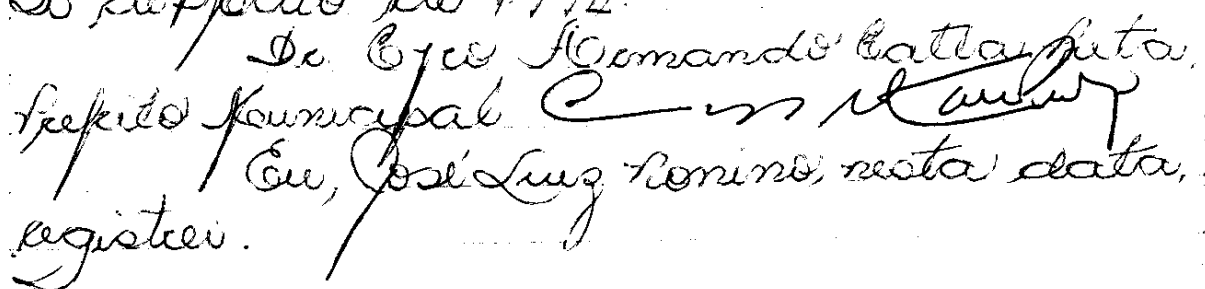 de 1992.
Dr. Cyro Armando Catta Preta,
Prefeito Municipal
Eu, José Luiz Ronino, nesta data,
registrei.